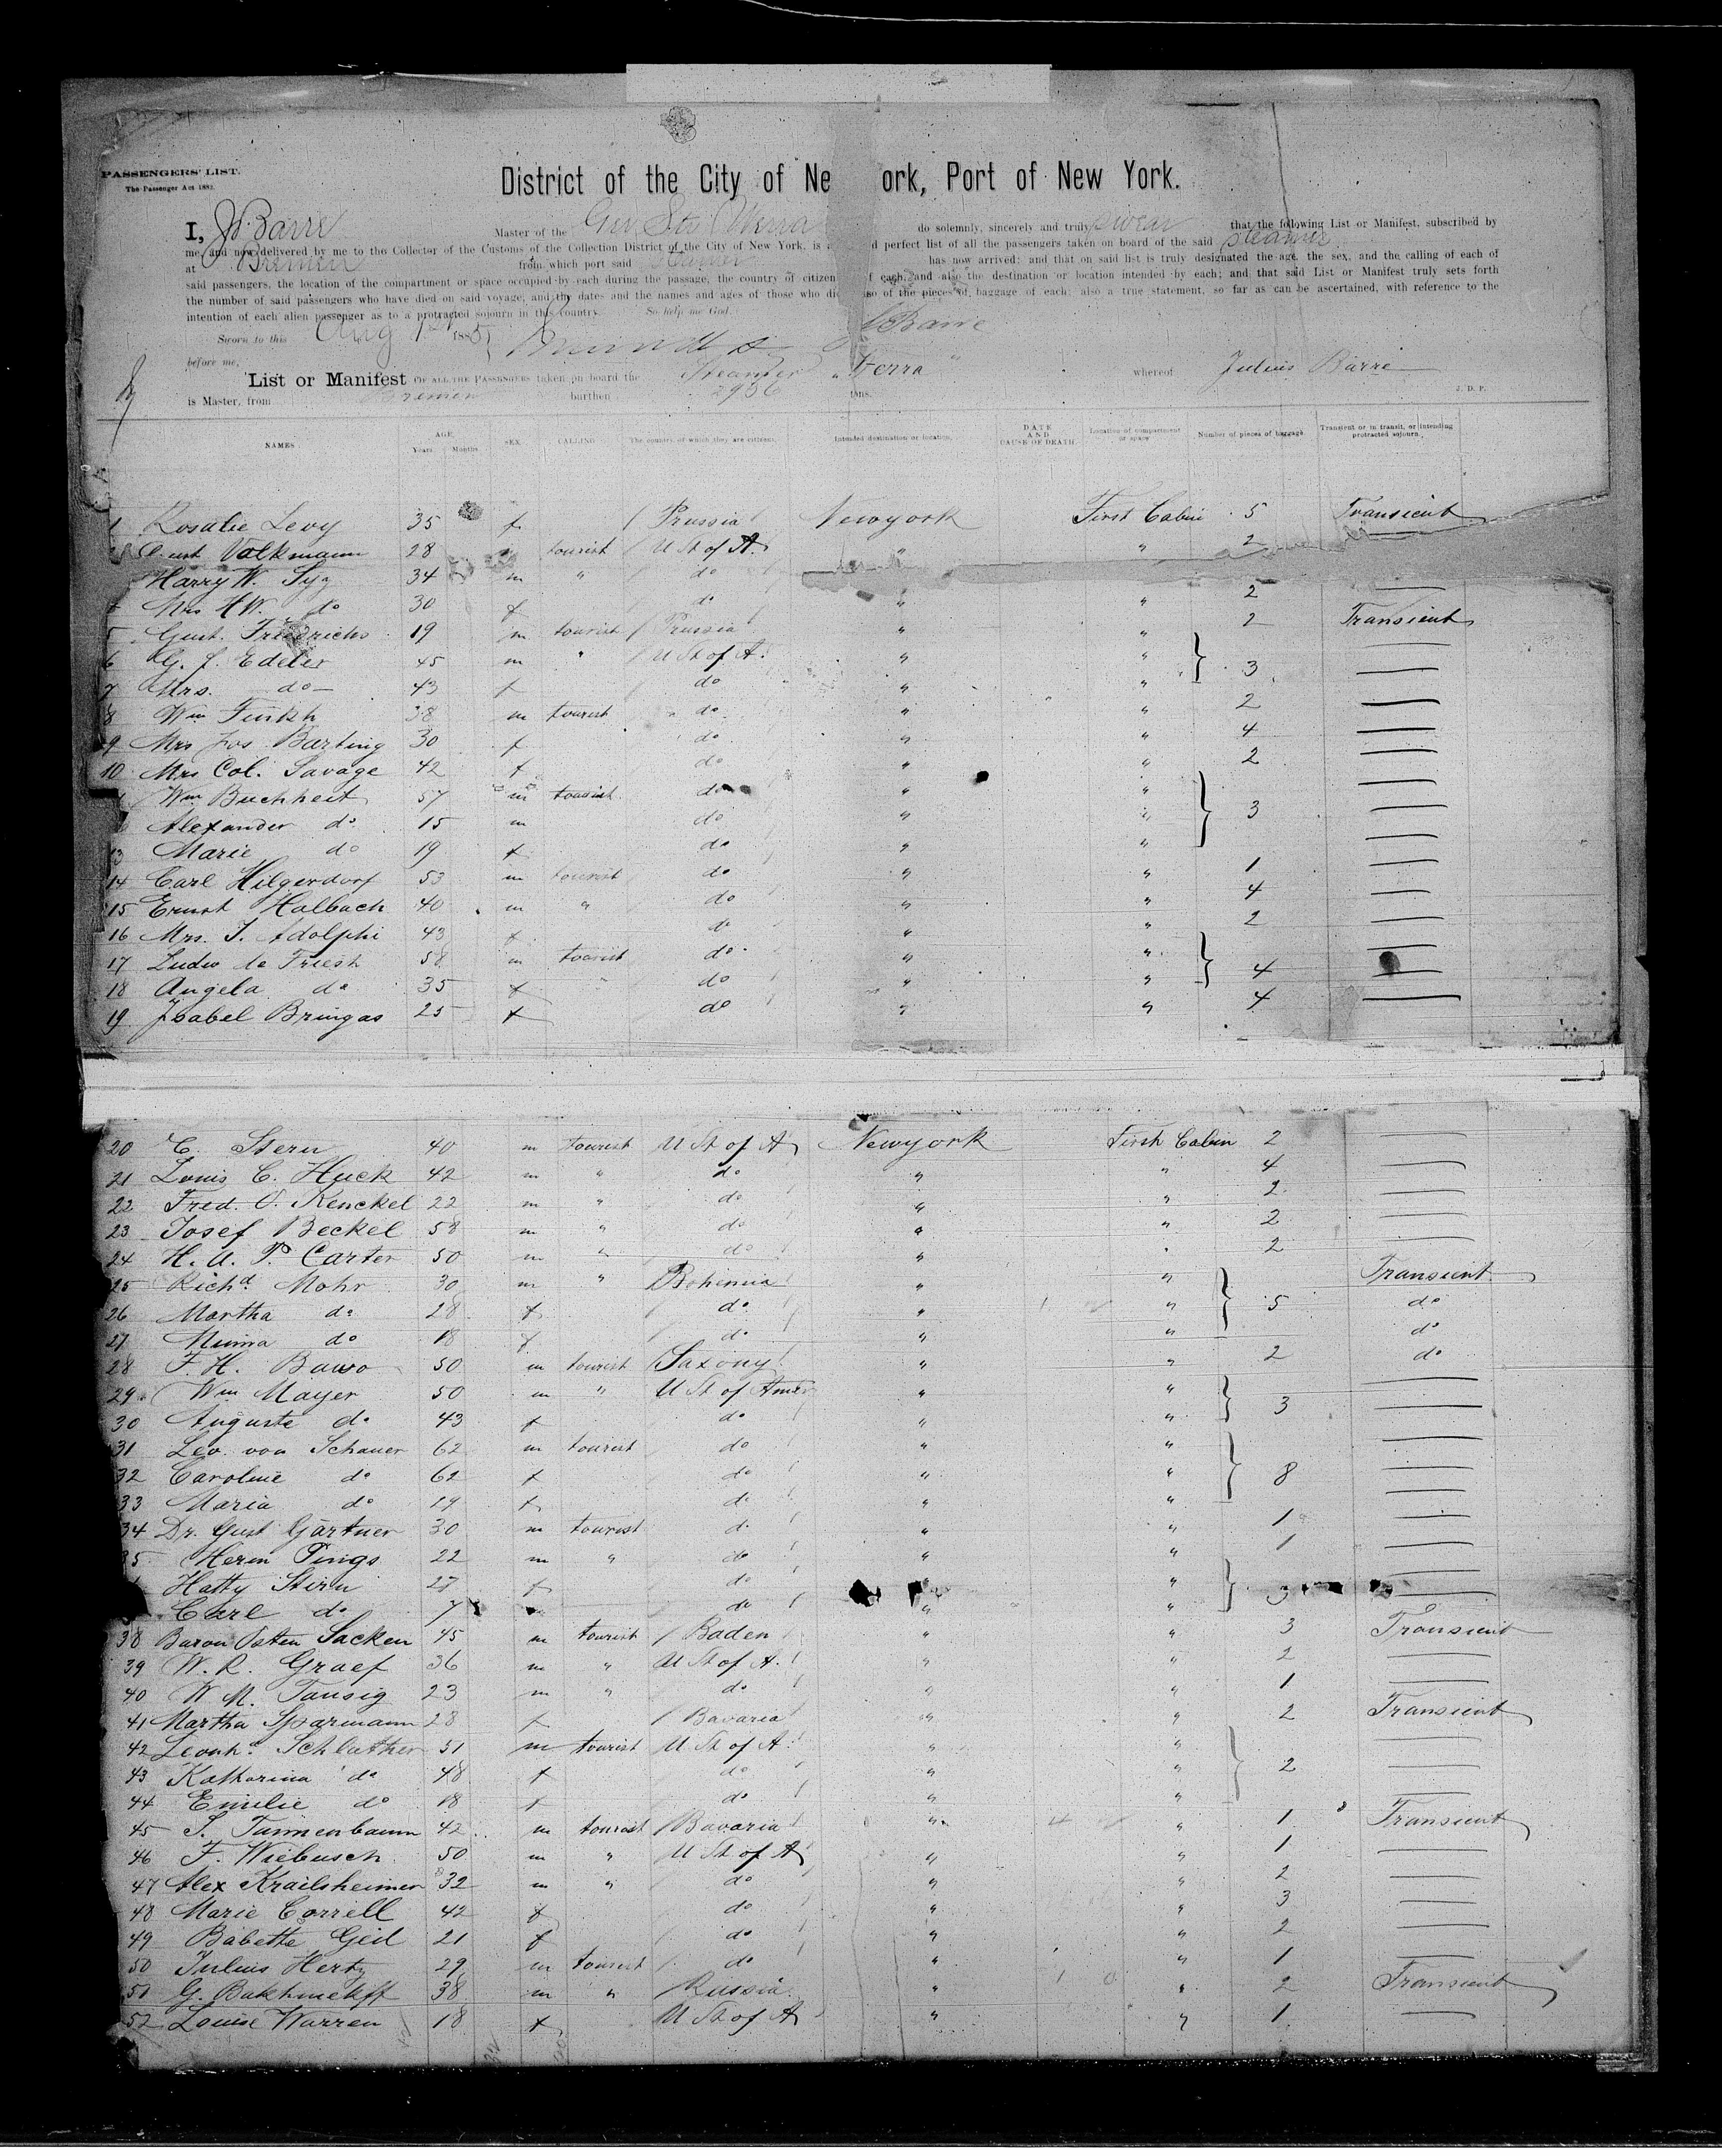 PASSENGERS' LIST.
The Passenger Act 1882.
District of the City of Ne ork, Port of New York.
I, J. Barre Master of the Ger Str Werra do solemnly, sincerely and truly swear that the following List or Manifest, subscribed by
me, and now delivered by me to the Collector of the Customs of the Collection District of the City of New York, is a d perfect list of all the passengers taken on board of the said steamer
at Bremen from which port said steamer has now arrived; and that on said list is truly designated the age, the sex, and the calling of each of
said passengers, the location of the compartment or space occupied by each during the passage, the country of citizen f each, and also the destination or location intended by each; and that said List or Manifest truly sets forth
the number of said passengers who have died on said voyage, and the dates and the names and ages of those who die so of the pieces of baggage of each; also a true statement, so far as can be ascertained, with reference to the
intention of each alien passenger as to a protracted sojourn in this country. So help me God.
Sworn to this Aug 1st 1885 Barre
before me,
List or Manifest OF ALL THE PASSENGERS taken on board the Steamer "Werra" whereof Julius Barre
is Master, from Bremen burthen 2936 tons. J. D. P.
NAMES AGE Years. Months. SEX. CALLING The country of which they are citizens. Intended destination or location. DATE AND CAUSE OF DEATH. Location of compartment or space Number of pieces of baggage. Transient or in transit, or intending protracted sojourn.
1 Rosalie Levy 35 f Prussia Newyork First Cabin 5 Transient
Volkmann 28 tourist U St of A. " " 2 —
Harry W. Syz 34 m " do
Mrs H W. do 30 f do " " 2 —
5 Gust. Friedrichs 19 m tourist Prussia " " 2 Transient
6 G. f. Edeler 45 m " U St of A. " " 3 —
7 Mrs. do 43 f do " " —
8 Wm Funkh 38 m tourist do " " 2 —
9 Mrs Jos Barting 30 f do " " 4 —
10 Mrs Col. Savage 42 f do " " 2 —
Wm Buchheit 57 m tourist do " " 3 —
Alexander do 15 m do " " —
13 Marie do 19 f do " " —
14 Carl Hilgerdorf 53 m tourist do " " 1 —
15 Ernst Halbach 40 m " do " " 4 —
16 Mrs. J. Adolphi 43 f do " " 2 —
17 Ludw de Friesh 58 m tourist do " " 4 —
18 Angela do 35 f do " " —
19 Isabel Bringas 25 f do " " 4 —
20 C. Stern 40 m tourist U St of A Newyork First Cabin 2 —
21 Louis C. Huck 42 m " do " " 4 —
22 Fred. O. Renckel 22 m " do " " 2 —
23 Josef Beckel 58 m " do " " 2 —
24 H. A. P. Carter 50 m " do " " 2 —
25 Richd Mohr 30 m " Bohemia " " 5 Transient
26 Martha do 28 f do " " do
27 Minna do 18 f do " " do
28 F. H. Bawo 50 m tourist Saxony " " 2 do
29 Wm Mayer 50 m " U St of Amer " " 3 —
30 Auguste do 43 f do " " —
31 Leo von Schauer 62 m tourist do " " 8 —
32 Caroline do 62 f do " " —
33 Maria do 19 f do " " —
34 Dr. Gust Gärtner 30 m tourist do " " 1 —
35 Herm Pings 22 m " do " " 1 —
Hatty Stirn 27 f do " " 3 —
Carl do 7 do " " —
38 Baron Osten Sacken 45 m tourist Baden " " 3 Transient
39 W. R. Graef 36 m " U St of A. " " 2 —
40 W M. Tausig 23 m " do " " 1 —
41 Martha Sparmann 28 f Bavaria " " 2 Transient
42 Leonhd Schlather 51 m tourist U St of A. " " 2 —
43 Katharina do 48 f do " " —
44 Emilie do 18 f do " " —
45 S. Tannenbaum 42 m tourist Bavaria " " 1 Transient
46 F. Wiebusch 50 m " U St of A " " 1 —
47 Alex Krailsheimer 32 m " do " " 2 —
48 Marie Correll 42 f do " " 3 —
49 Babette Geil 21 f do " " 2 —
50 Julius Hertz 29 m tourist do " " 1 —
51 G. Bakhmeteff 38 m " Russia " " 2 Transient
52 Louise Warren 18 f U St of A " " 1 —